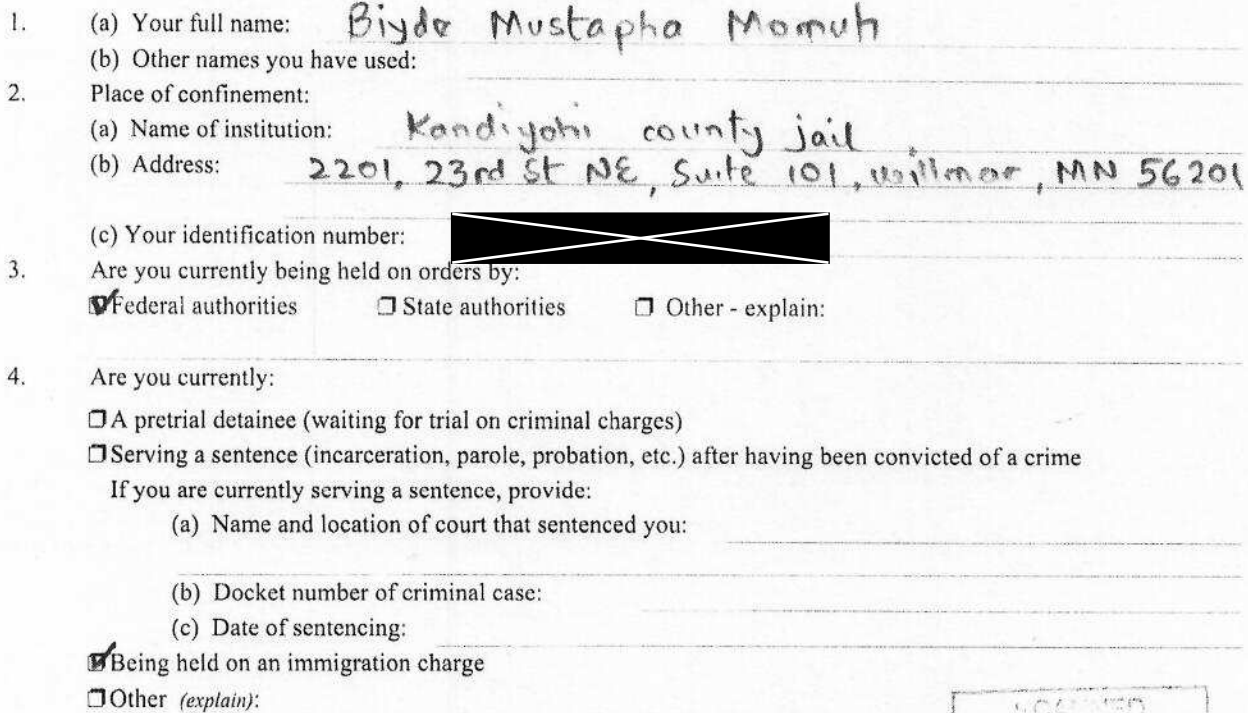 1. (a) Your full name: Biyde Mustapha Momuh
(b) Other names you have used:
2. Place of confinement:
(a) Name of institution: Kandiyohi county jail,
(b) Address: 2201, 23rd St NE, Suite 101, willmar, MN 56201
(c) Your identification number:
3. Are you currently being held on orders by:
Federal authorities State authorities Other - explain:
4. Are you currently:
A pretrial detainee (waiting for trial on criminal charges)
Serving a sentence (incarceration, parole, probation, etc.) after having been convicted of a crime
If you are currently serving a sentence, provide:
(a) Name and location of court that sentenced you:
(b) Docket number of criminal case:
(c) Date of sentencing:
Being held on an immigration charge
Other (explain):